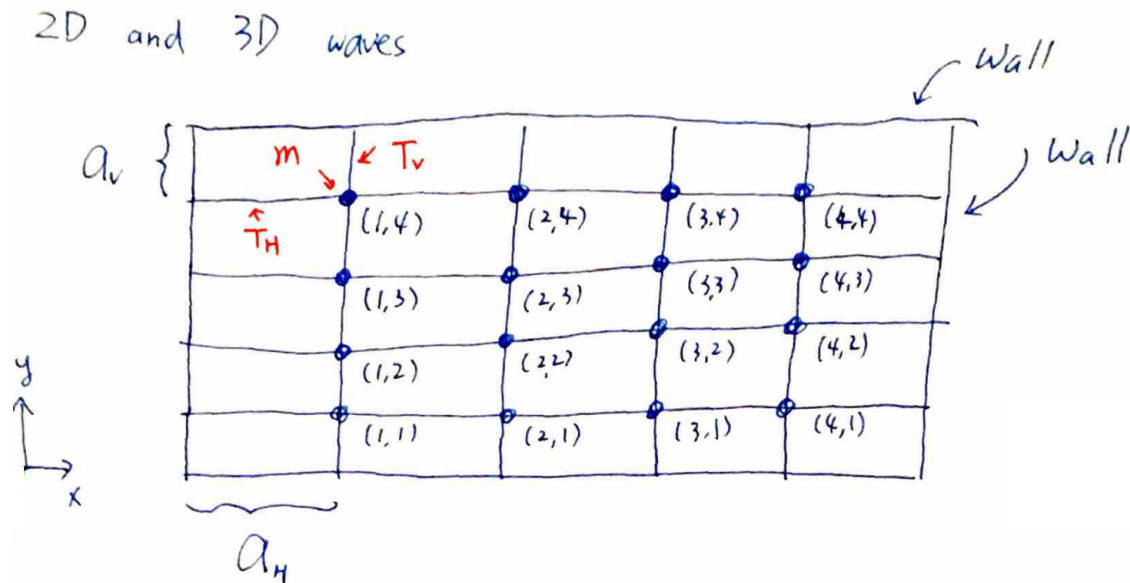 2D and 3D waves
Wall
Wall
a_v {
m
T_v
T_H
(1,4) (2,4) (3,4) (4,4)
(1,3) (2,3) (3,3) (4,3)
(1,2) (2,2) (3,2) (4,2)
(1,1) (2,1) (3,1) (4,1)
y
x
a_H